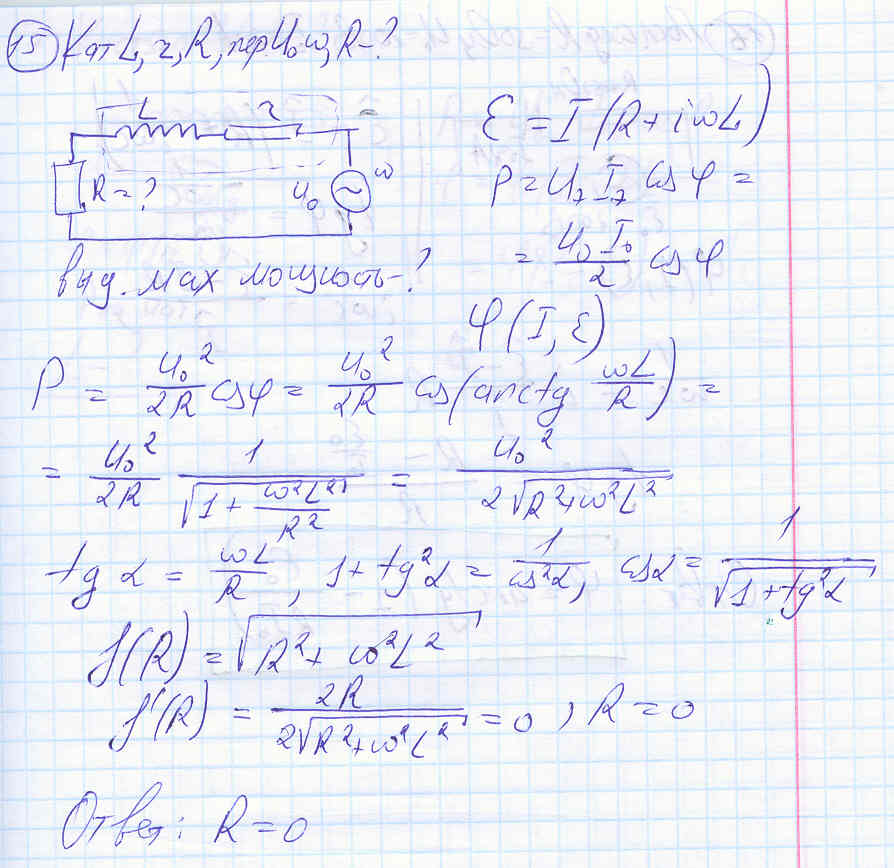 15 Кат L, r, R, пер U₀ ω, R-?
L r
R=? U₀ ω
ℰ = I (R + iωL)
P = U I cos φ =
= U₀ I₀ / 2 cos φ
выд. мах мощность-?
φ (I, ℰ)
P = U₀² / 2R cos φ = U₀² / 2R cos(arctg ωL / R) =
= U₀² / 2R 1 / √(1 + ω²L² / R²) = U₀² / 2√(R²+ω²L²)
tg α = ωL / R , 1 + tg²α = 1 / cos²α, cos α = 1 / √(1 + tg²α)
f(R) = √(R² + ω²L²)
f'(R) = 2R / 2√(R²+ω²L²) = 0 , R = 0
Ответ: R = 0